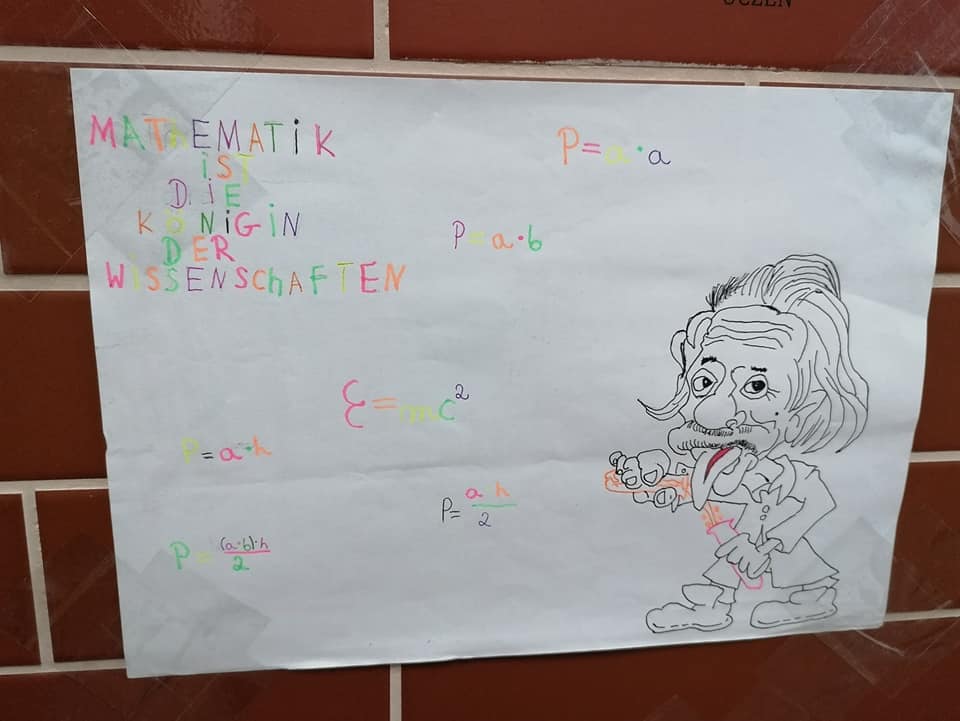 UCZEŃ
MATHEMATIK
iST
DiE
KÖNiGiN
DER
WISSENSChAFTEN
P=a·a
P=a·b
E=mc²
P=a·h
P=a h/2
P=(a·b)·h/2